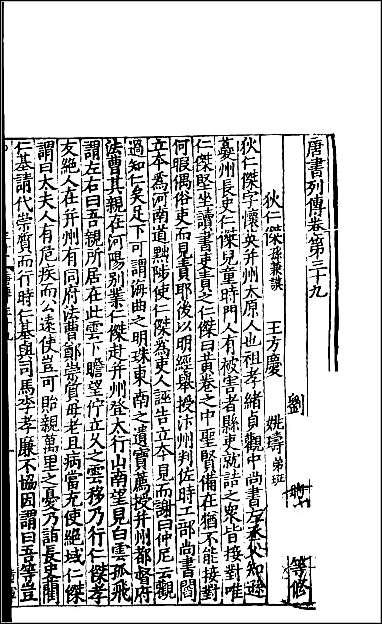 唐書列傳卷第三十九
劉昫等修
狄仁傑孫兼謨 王方慶 姚璹弟珽
狄仁傑字懷英并州太原人也祖孝緒貞觀中尚書左丞父知遜
夔州長史仁傑兒童時門人有被害者縣吏就詰之衆皆接對唯
仁傑堅坐讀書吏責之仁傑曰黃卷之中聖賢備在猶不能接對
何暇偶俗吏而見責耶後以明經舉授汴州判佐時工部尚書閻
立本為河南道黜陟使仁傑為吏人誣告立本見而謝曰仲尼云觀
過知仁矣足下可謂海曲之明珠東南之遺寶薦授并州都督府
法曹其親在河陽別業仁傑赴并州登太行山南望見白雲孤飛
謂左右曰吾親所居在此雲下瞻望佇立久之雲移乃行仁傑孝
友絕人在并州有同府法曹鄭崇質母老且病當充使絕域仁傑
謂曰太夫人有危疾而公遠使豈可貽親萬里之憂乃詣長史藺
仁基請代崇質而行時仁基與司馬李孝廉不協因謂曰吾等豈